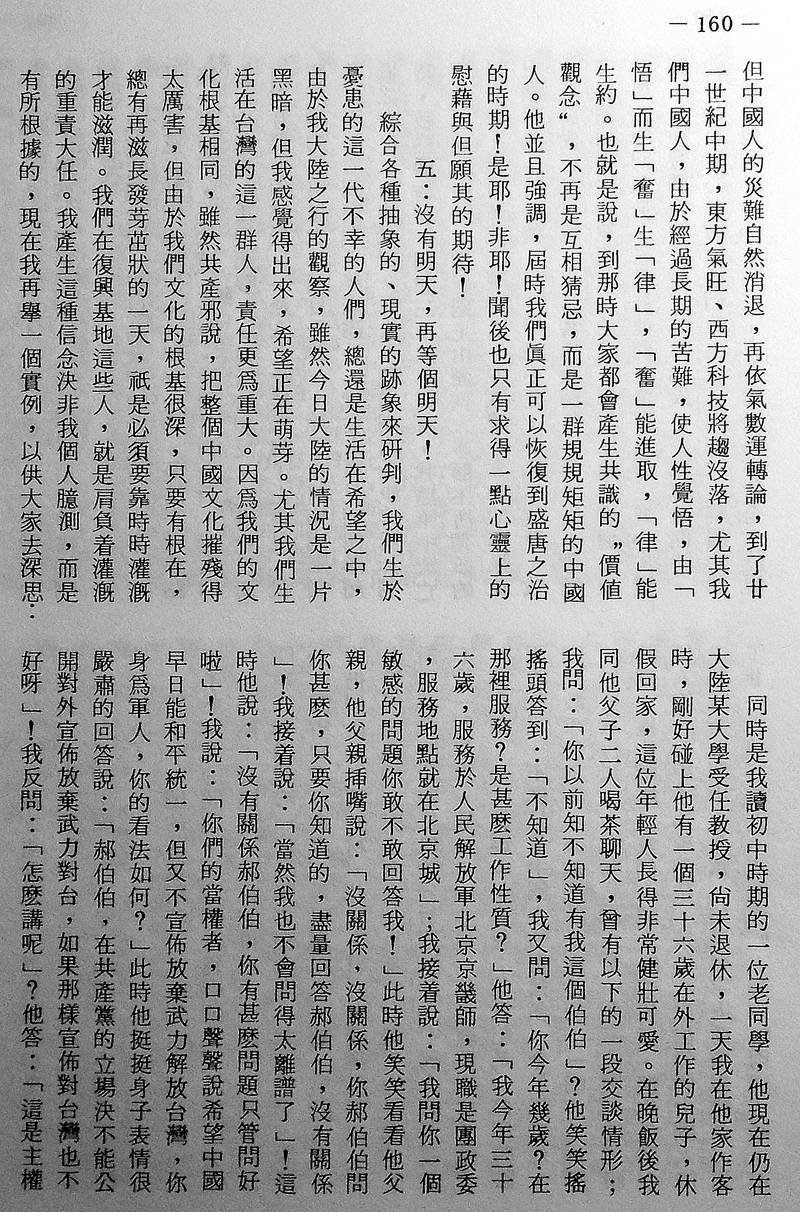 －160－
但中國人的災難自然消退，再依氣數運轉論，到了廿
一世紀中期，東方氣旺、西方科技將趨沒落，尤其我
們中國人，由於經過長期的苦難，使人性覺悟，由「
悟」而生「奮」生「律」，「奮」能進取，「律」能
生約。也就是說，到那時大家都會產生共識的〝價値
觀念〞，不再是互相猜忌，而是一群規規矩矩的中國
人。他並且強調，屆時我們眞正可以恢復到盛唐之治
的時期！是耶！非耶！聞後也只有求得一點心靈上的
慰藉與但願其的期待！
五：沒有明天，再等個明天！
綜合各種抽象的、現實的跡象來研判，我們生於
憂患的這一代不幸的人們，總還是生活在希望之中，
由於我大陸之行的觀察，雖然今日大陸的情況是一片
黑暗，但我感覺得出來，希望正在萌芽。尤其我們生
活在台灣的這一群人，責任更爲重大。因爲我們的文
化根基相同，雖然共產邪說，把整個中國文化摧殘得
太厲害，但由於我們文化的根基很深，只要有根在，
總有再滋長發芽茁狀的一天，祇是必須要靠時時灌漑
才能滋潤。我們在復興基地這些人，就是肩負着灌漑
的重責大任。我產生這種信念決非我個人臆測，而是
有所根據的，現在我再舉一個實例，以供大家去深思：
同時是我讀初中時期的一位老同學，他現在仍在
大陸某大學受任教授，尙未退休，一天我在他家作客
時，剛好碰上他有一個三十六歲在外工作的兒子，休
假回家，這位年輕人長得非常健壯可愛。在晚飯後我
同他父子二人喝茶聊天，曾有以下的一段交談情形；
我問：「你以前知不知道有我這個伯伯」？他笑笑搖
搖頭答到：「不知道」，我又問：「你今年幾歲？在
那裡服務？是甚麽工作性質？」他答：「我今年三十
六歲，服務於人民解放軍北京京畿師，現職是團政委
，服務地點就在北京城」；我接着說：「我問你一個
敏感的問題你敢不敢回答我！」此時他笑笑看看他父
親，他父親揷嘴說：「沒關係，沒關係，你郝伯伯問
你甚麽，只要你知道的，盡量回答郝伯伯，沒有關係
」！我接着說：「當然我也不會問得太離譜了」！這
時他說：「沒有關係郝伯伯，你有甚麽問題只管問好
啦」！我說：「你們的當權者，口口聲聲說希望中國
早日能和平統一，但又不宣佈放棄武力解放台灣，你
身爲軍人，你的看法如何？」此時他挺挺身子表情很
嚴肅的回答說：「郝伯伯，在共產黨的立場決不能公
開對外宣佈放棄武力對台，如果那樣宣佈對台灣也不
好呀」！我反問：「怎麽講呢」？他答：「這是主權